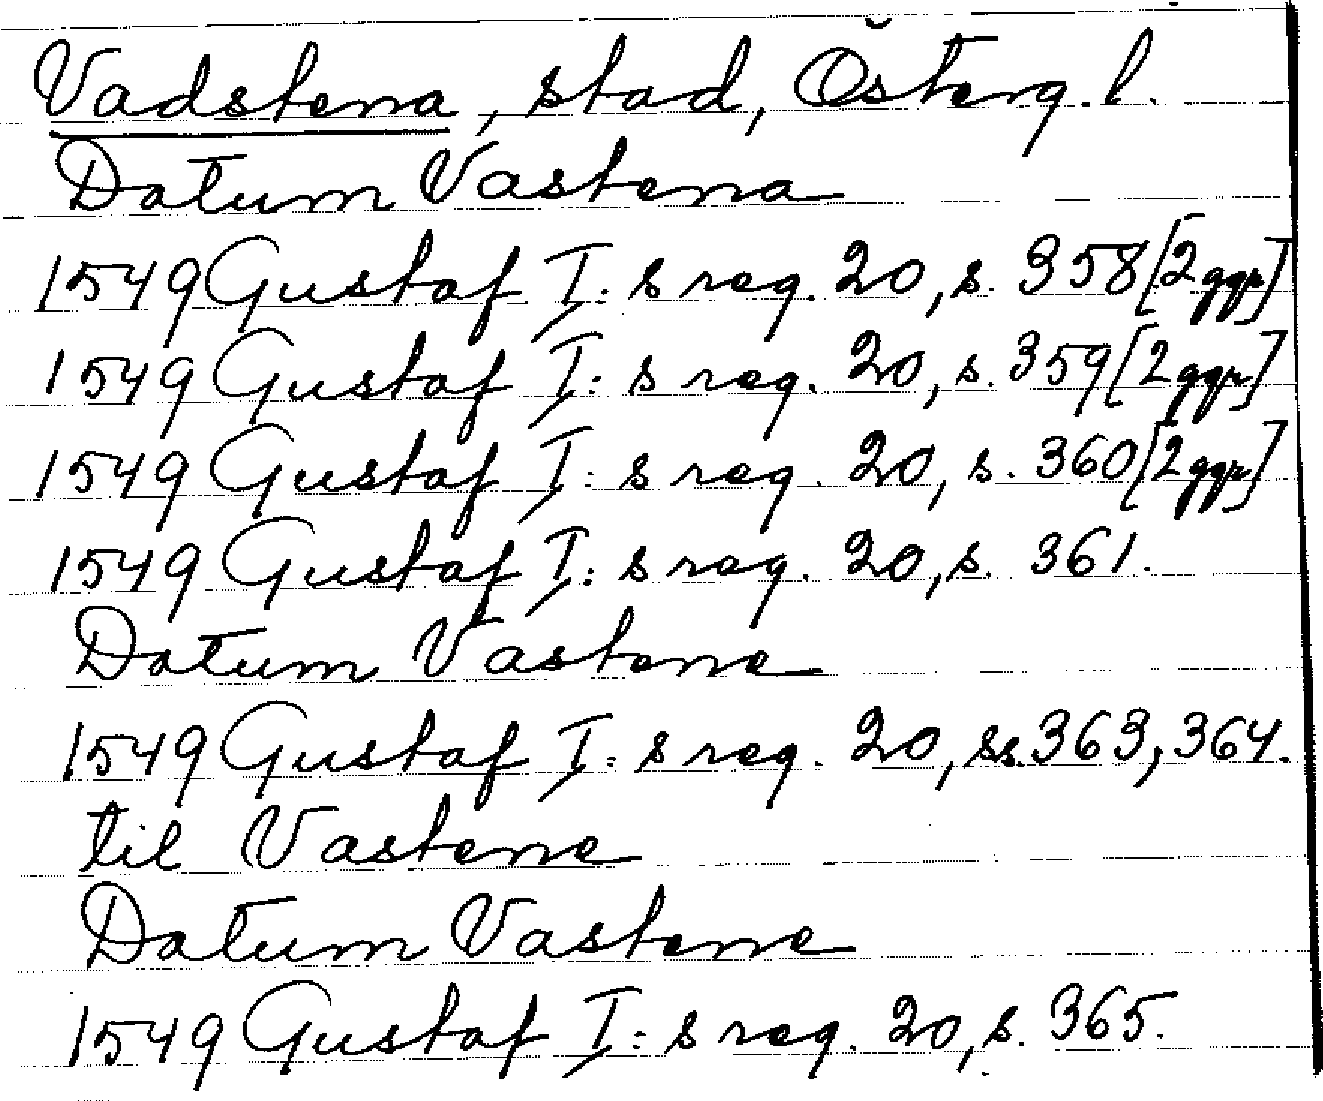 Vadstena, stad, Österg. l.
Datum Vastena
1549 Gustaf I:s reg. 20, s. 358 [2 ggr]
1549 Gustaf I:s reg. 20, s. 359 [2 ggr]
1549 Gustaf I:s reg. 20, s. 360 [2 ggr]
1549 Gustaf I:s reg. 20, s. 361.
Datum Vastene
1549 Gustaf I:s reg. 20, ss. 363, 364.
til Vastene
Datum Vastene
1549 Gustaf I:s reg. 20, s. 365.